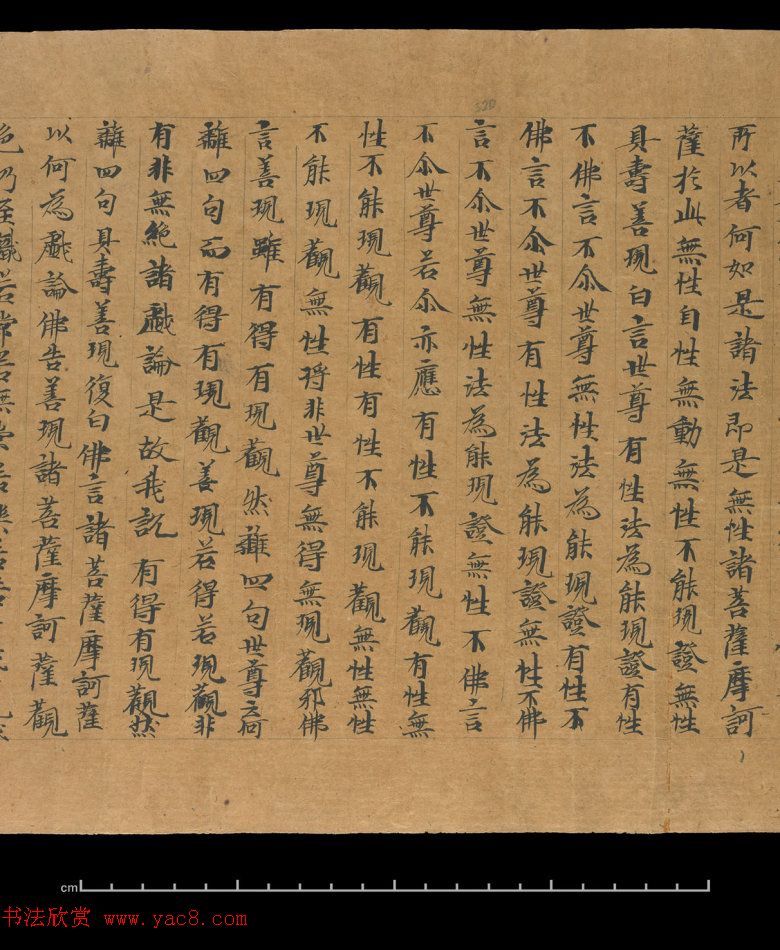 所以者何如是諸法即是無性諸菩薩摩訶
薩於此無性自性無動無性不能現證無性
具壽善現白言世尊有性法為能現證有性
不佛言不尒世尊無性法為能現證有性不
佛言不尒世尊有性法為能現證無性不佛
言不尒世尊無性法為能現證無性不佛言
不尒世尊若尒亦應有性不能現觀有性無
性不能現觀有性有性不能現觀無性無性
不能現觀無性將非世尊無得無現觀邪佛
言善現雖有得有現觀然離四句世尊云何
離四句而有得有現觀善現若得若現觀非
有非無絕諸戲論是故我說有得有現觀然
離四句具壽善現復白佛言諸菩薩摩訶薩
以何為戲論佛告善現諸菩薩摩訶薩觀
色乃至識若常若無常
320
cm
书法欣赏 www.yac8.com